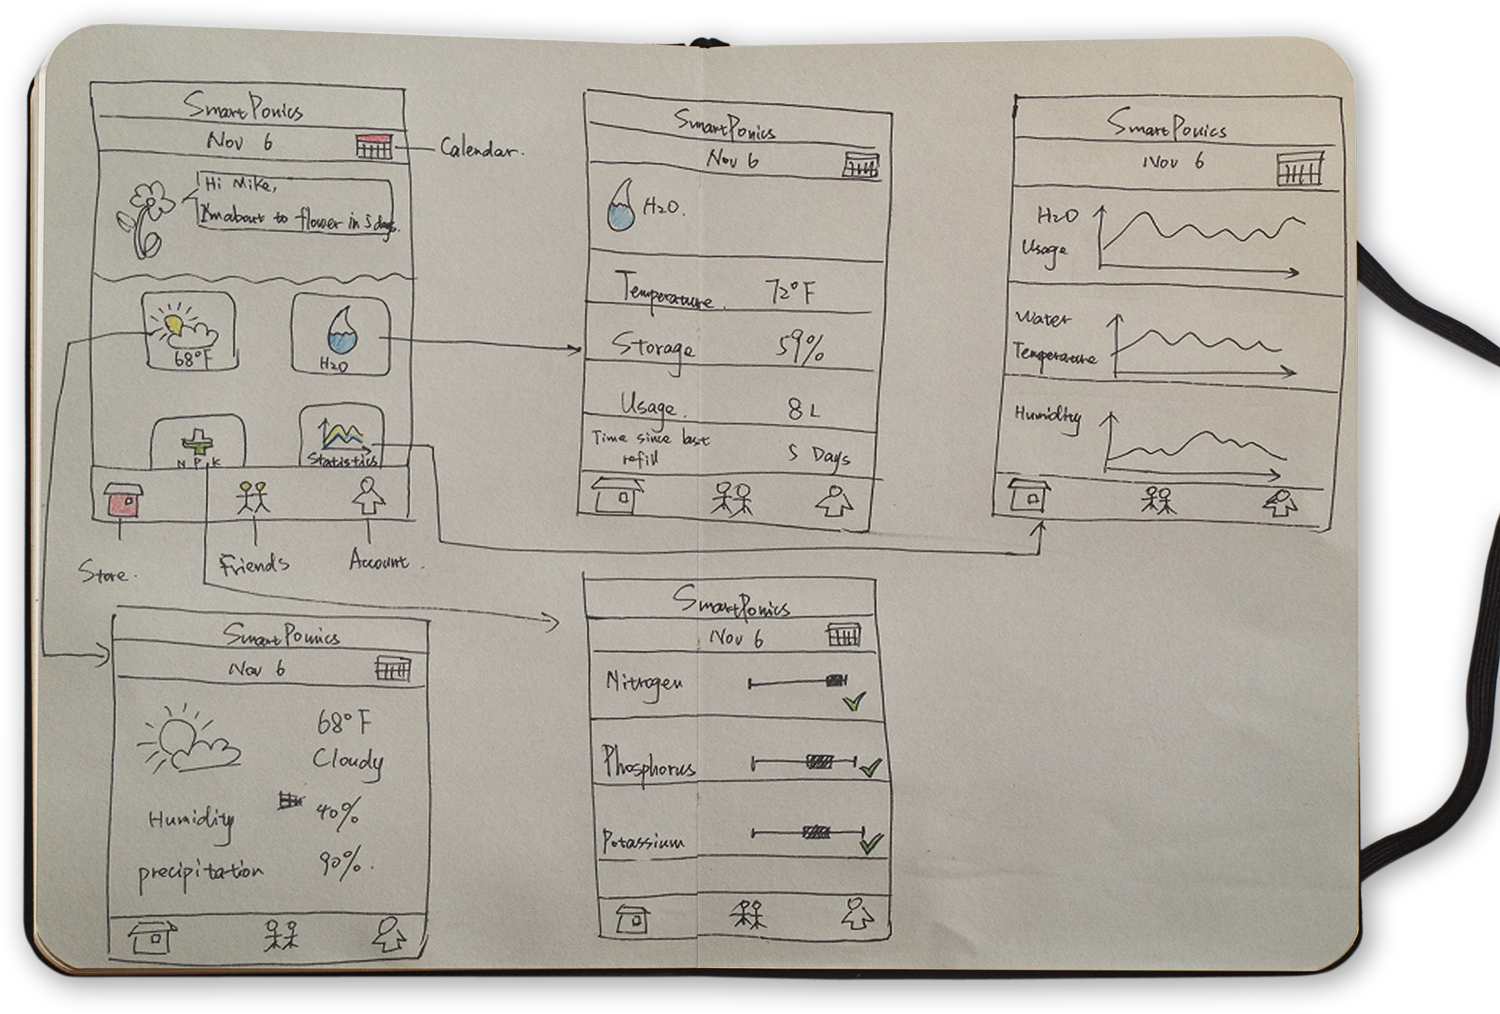 SmartPonics
Nov 6
Calendar.
Hi Mike,
I'm about to flower in 5 days.
68°F
H2O
N P K
Statistics
Store.
Friends
Account.
SmartPonics
Nov 6
H2O.
Temperature. 72°F
Storage 59%
Usage. 8 L
Time since last
refill
5 Days
SmartPonics
Nov 6
H2O
Usage
Water
Temperature
Humidity
SmartPonics
Nov 6
68°F
Cloudy
Humidity 40%
precipitation 90%.
SmartPonics
Nov 6
Nitrogen
Phosphorus
Potassium